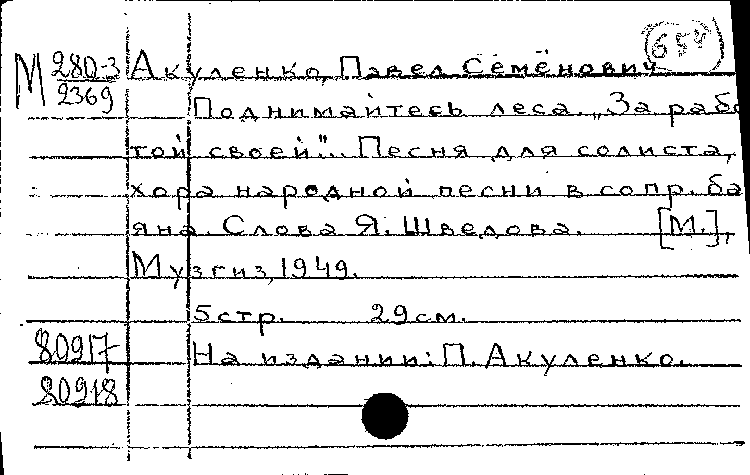 (658)
М 280-3 Акуленко, Павел Семёнович
2369
Поднимайтесь леса. „За рабо
той своей"... Песня для солиста,
хора народной песни в сопр. ба
яна. Слова Я. Шведова. [М.],
Музгиз, 1949.
5 стр. 29 см.
80917 На издании: П. Акуленко.
80918